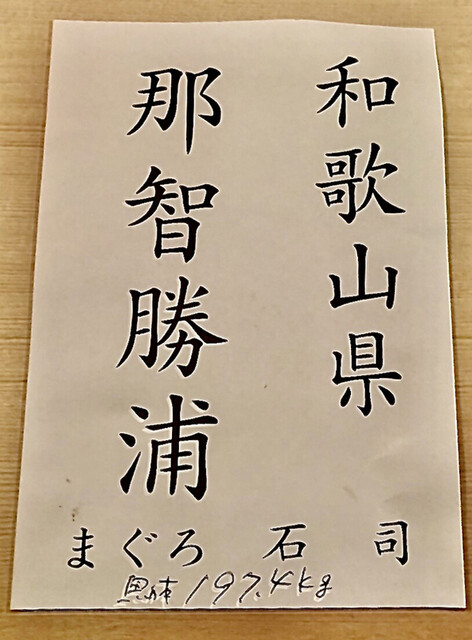 和歌山県
那智勝浦
まぐろ 石司
197.4kg